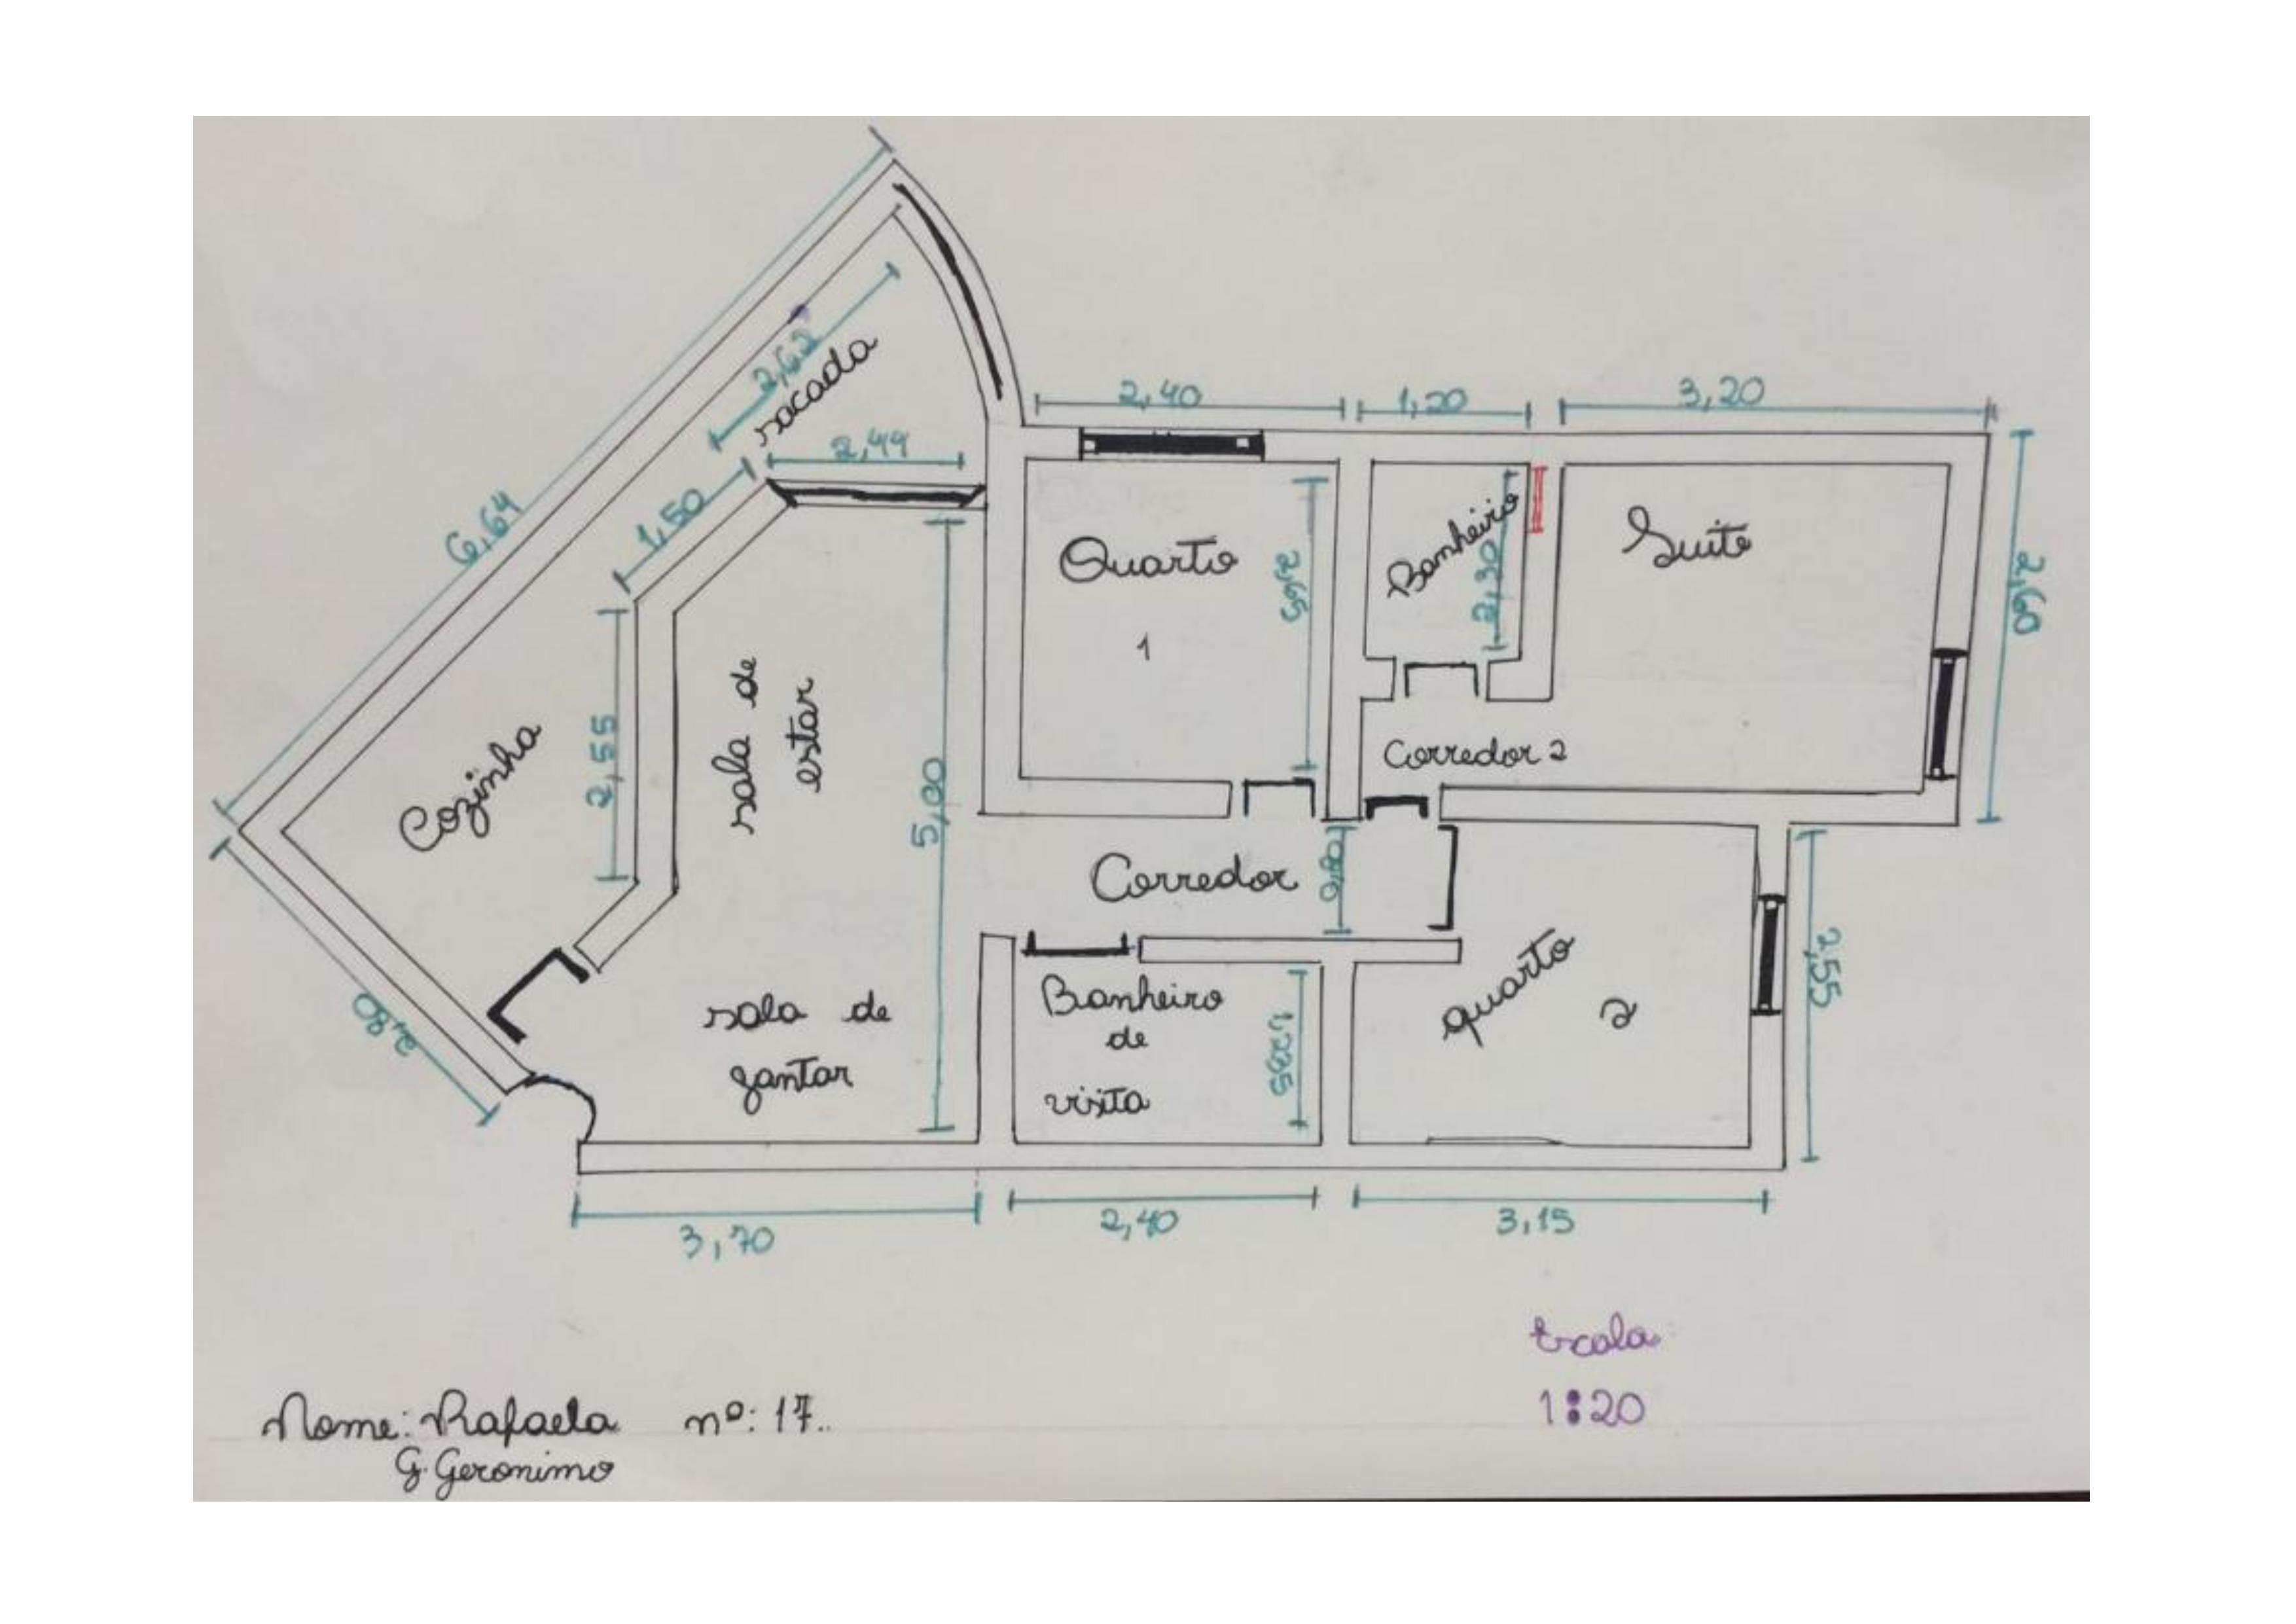 6,64
2,62
sacada
2,44
1,50
2,40
1,20
3,20
2,60
Quarto
1
2,65
Banheiro
2,30
Suite
Cozinha
2,55
sala de
estar
5,00
Corredor 2
Corredor
0,80
2,80
sala de
gantar
Banheiro
de
visita
quarto
2
2,55
3,70
2,40
3,15
Escala
1:20
Nome: Rafaela nº: 17.
G. Geronimo